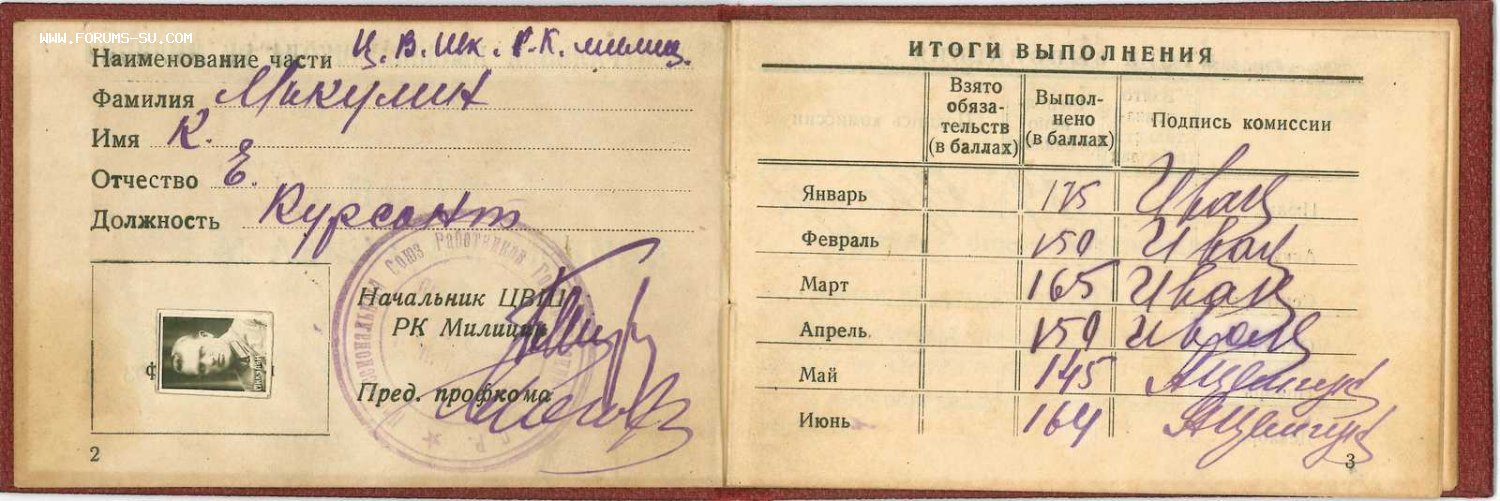 WWW.FORUMS-SU.COM
Наименование части Ц. В. шк. Р. К. милиц.
Фамилия Микулин
Имя К.
Отчество Е.
Должность Курсант
Союз Работников
Начальник ЦВШ
РК Милиции
Пред. профкома
ф
2
ИТОГИ ВЫПОЛНЕНИЯ
Взято обяза-тельств (в баллах) Выпол-нено (в баллах) Подпись комиссии
Январь 175
Февраль 150
Март 165
Апрель 150
Май 145
Июнь 164
3